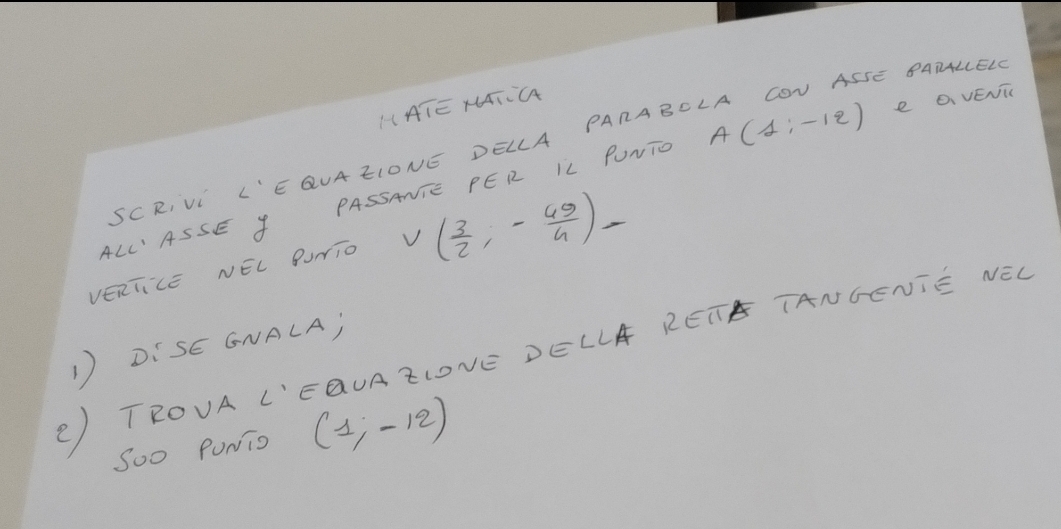 MATEMATICA
SCRIVI L'EQUAZIONE DELLA PARABOLA CON ASSE PARALLELO
ALL'ASSE y PASSANTE PER IL PUNTO A(1;-12) e AVENTE
VERTICE NEL PUNTO V(3/2; -49/4)-
1) DISEGNALA;
2) TROVA L'EQUAZIONE DELLA RETTA TANGENTE NEL
SUO PUNTO (1;-12)